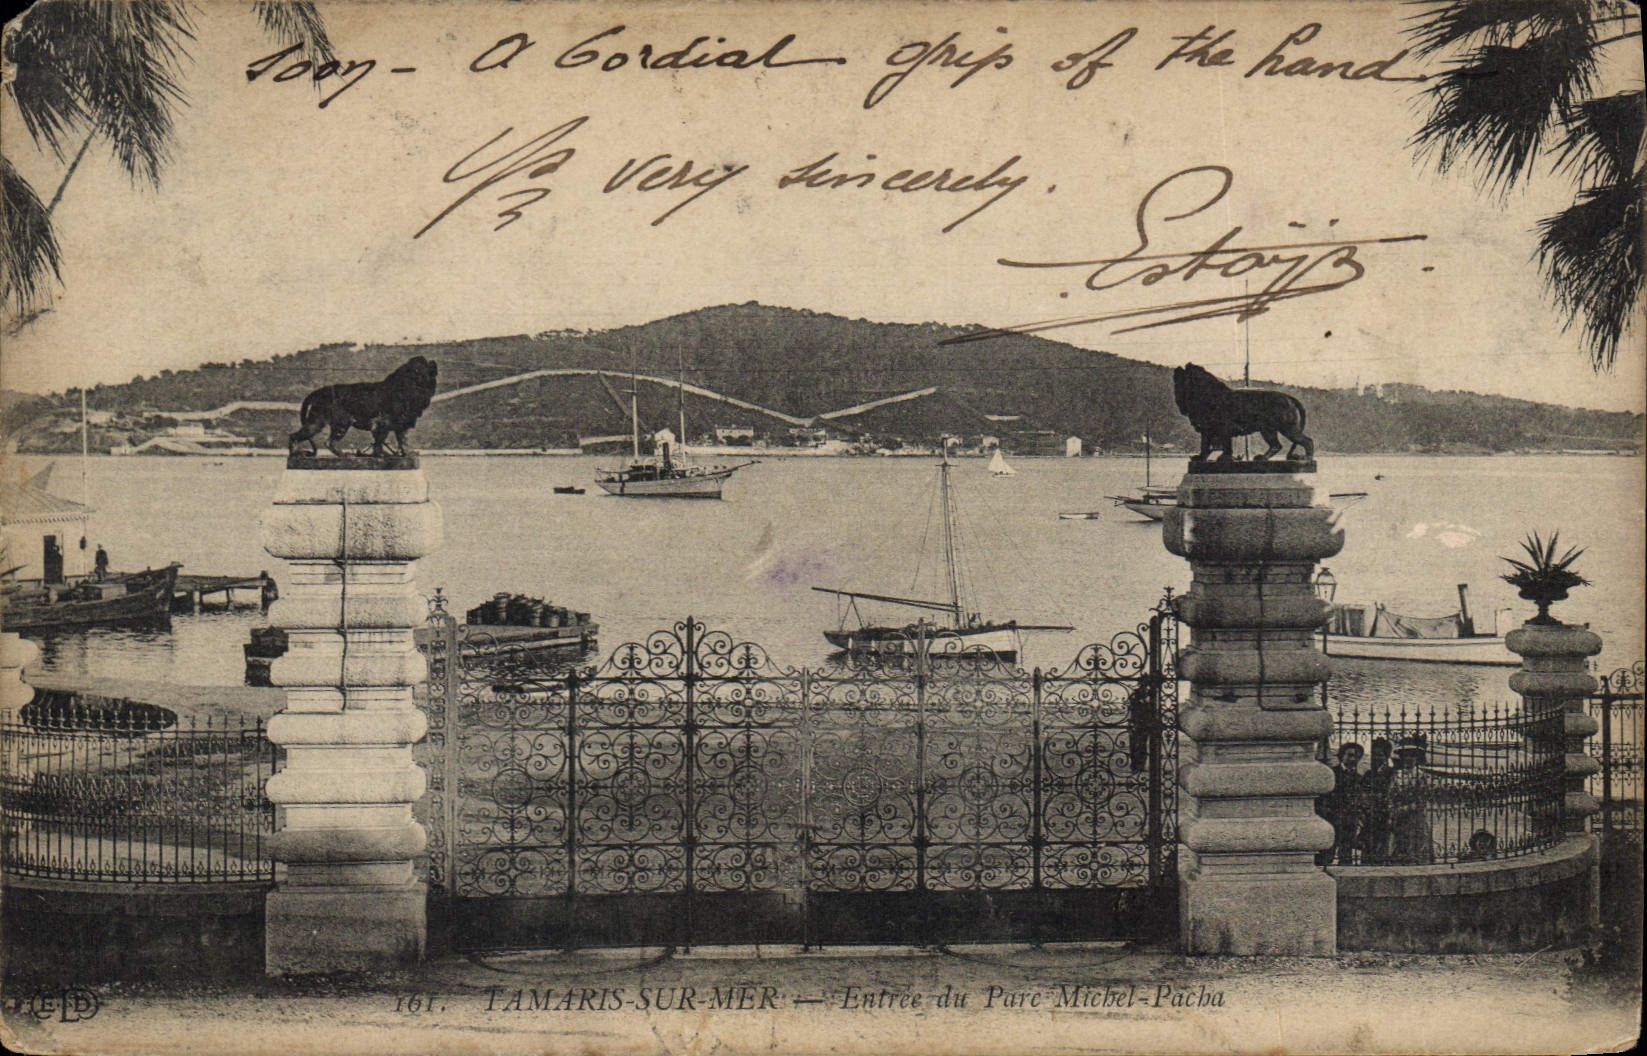 soon - A Cordial grip of the hand -
Yrs very sincerely.
ELD
161. TAMARIS-SUR-MER — Entrée du Parc Michel-Pacha